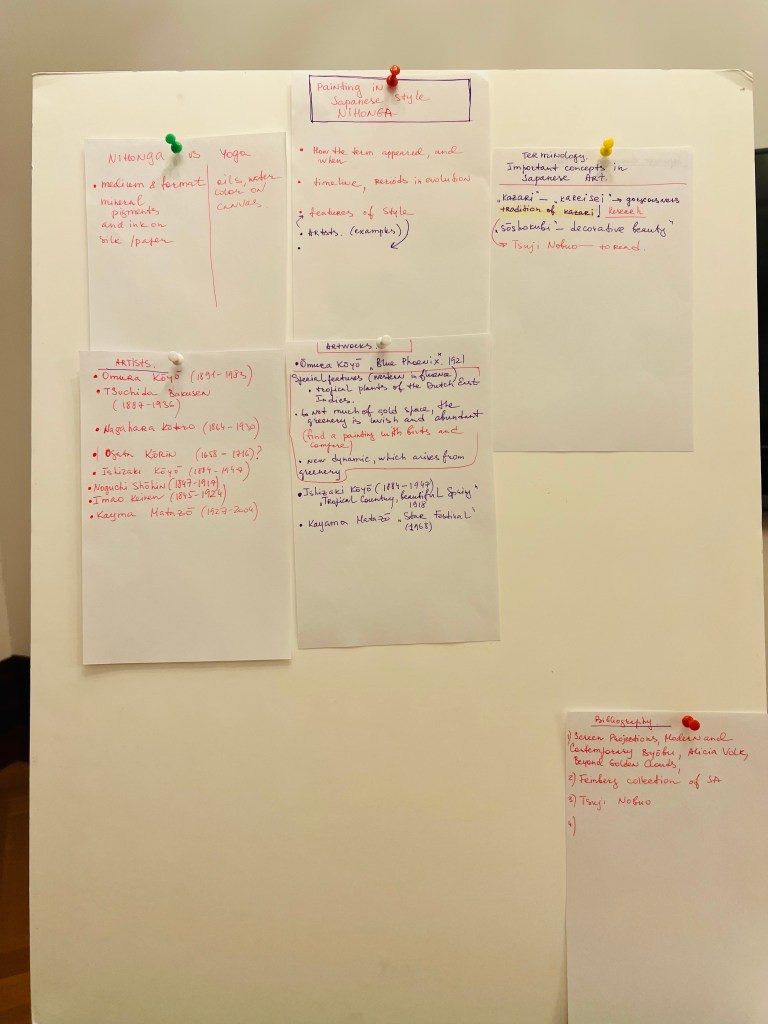 Painting in
Japanese style
NIHONGA
• How the term appeared, and
when
• timeline, periods in evolution
• features of style
• Artists. (examples)
•
NIHONGA vs YOGA
• medium & format
mineral
pigments
and ink on
silk / paper
oils, water
color on
canvas
Terminology.
Important concepts in
Japanese Art.
"Kazari" – "Kareisei" → gorgeousness
tradition of kazari! Research
• "Sōshokubi" – decorative beauty"
→ Tsuji Nobuo — to read.
ARTISTS.
• Ōmura Kōyō (1891-1983)
• Tsuchida Bakusen
(1887-1936)
• Nagahara Kōtaro (1864-1930)
• Ogata Kōrin (1658-1716)?
• Ishizaki Kōyō (1884-1947)
• Noguchi Shōhin (1847-1917)
• Imao Keinen (1845-1924)
• Kayma Matazō (1927-2004)
ARTWORKS.
• Ōmura Kōyō "Blue Phoenix". 1921
Special features (western influence)
• tropical plants of the Dutch East
Indies.
• not much of gold space, the
greenery is lavish and abundant
(find a painting with birds and
compare)
• New dynamic, which arises from
greenery
• Ishizaki Kōyō (1884-1947)
"Tropical Country, beautiful Spring"
1918
• Kayama Matazō "Star Festival"
(1968)
Bibliography.
1) Screen Projections, Modern and
Contemporary Byōbu, Alicia Volk,
Beyond Golden Clouds,
2) Feinberg collection of SA
3) Tsuji Nobuo
4)